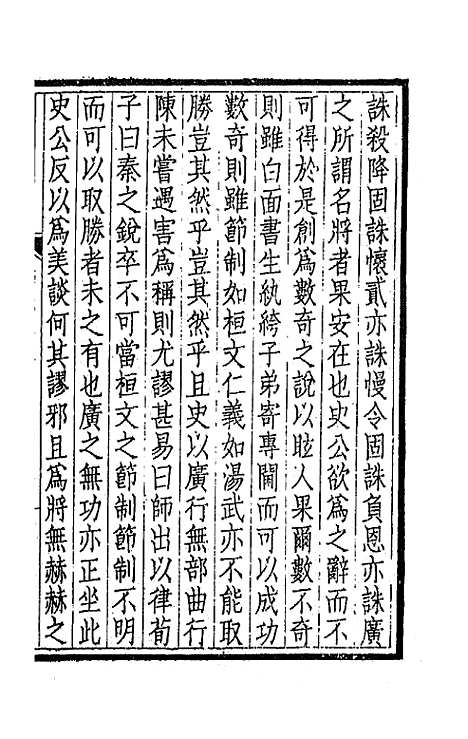 誅殺降固誅懷貳亦誅慢令固誅負恩亦誅廣
之所謂名將者果安在也史公欲爲之辭而不
可得於是創爲數奇之說以眩人果爾數不奇
則雖白面書生紈絝子弟寄專閫而可以成功
數奇則雖節制如桓文仁義如湯武亦不能取
勝豈其然乎豈其然乎且史以廣行無部曲行
陳未嘗遇害爲稱則尤謬甚易曰師出以律荀
子曰秦之銳卒不可當桓文之節制節制不明
而可以取勝者未之有也廣之無功亦正坐此
史公反以爲美談何其謬邪且爲將無赫赫之